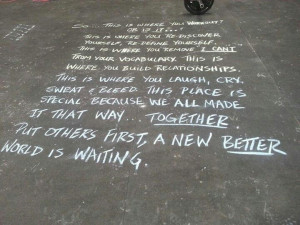 So... THIS IS WHERE YOU WORKOUT?
OR IS IT...?
THIS IS WHERE YOU RE-DISCOVER
YOURSELF, RE-DEFINE YOURSELF.
THIS IS WHERE YOU REMOVE I CANT
FROM YOUR VOCABULARY. THIS IS
WHERE YOU BUILD RELATIONSHIPS.
THIS IS WHERE YOU LAUGH, CRY,
SWEAT & BLEED. THIS PLACE IS
SPECIAL BECAUSE WE ALL MADE
IT THAT WAY... TOGETHER.
PUT OTHERS FIRST, A NEW BETTER
WORLD IS WAITING.